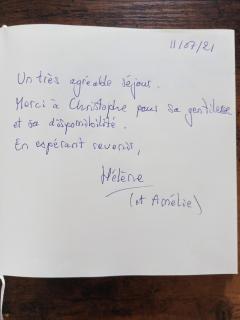 11/07/21
Un très agréable séjour.
Merci à Christophe pour sa gentillesse
et sa disponibilité.
En espérant revenir,
Hélène
(et Amélie)